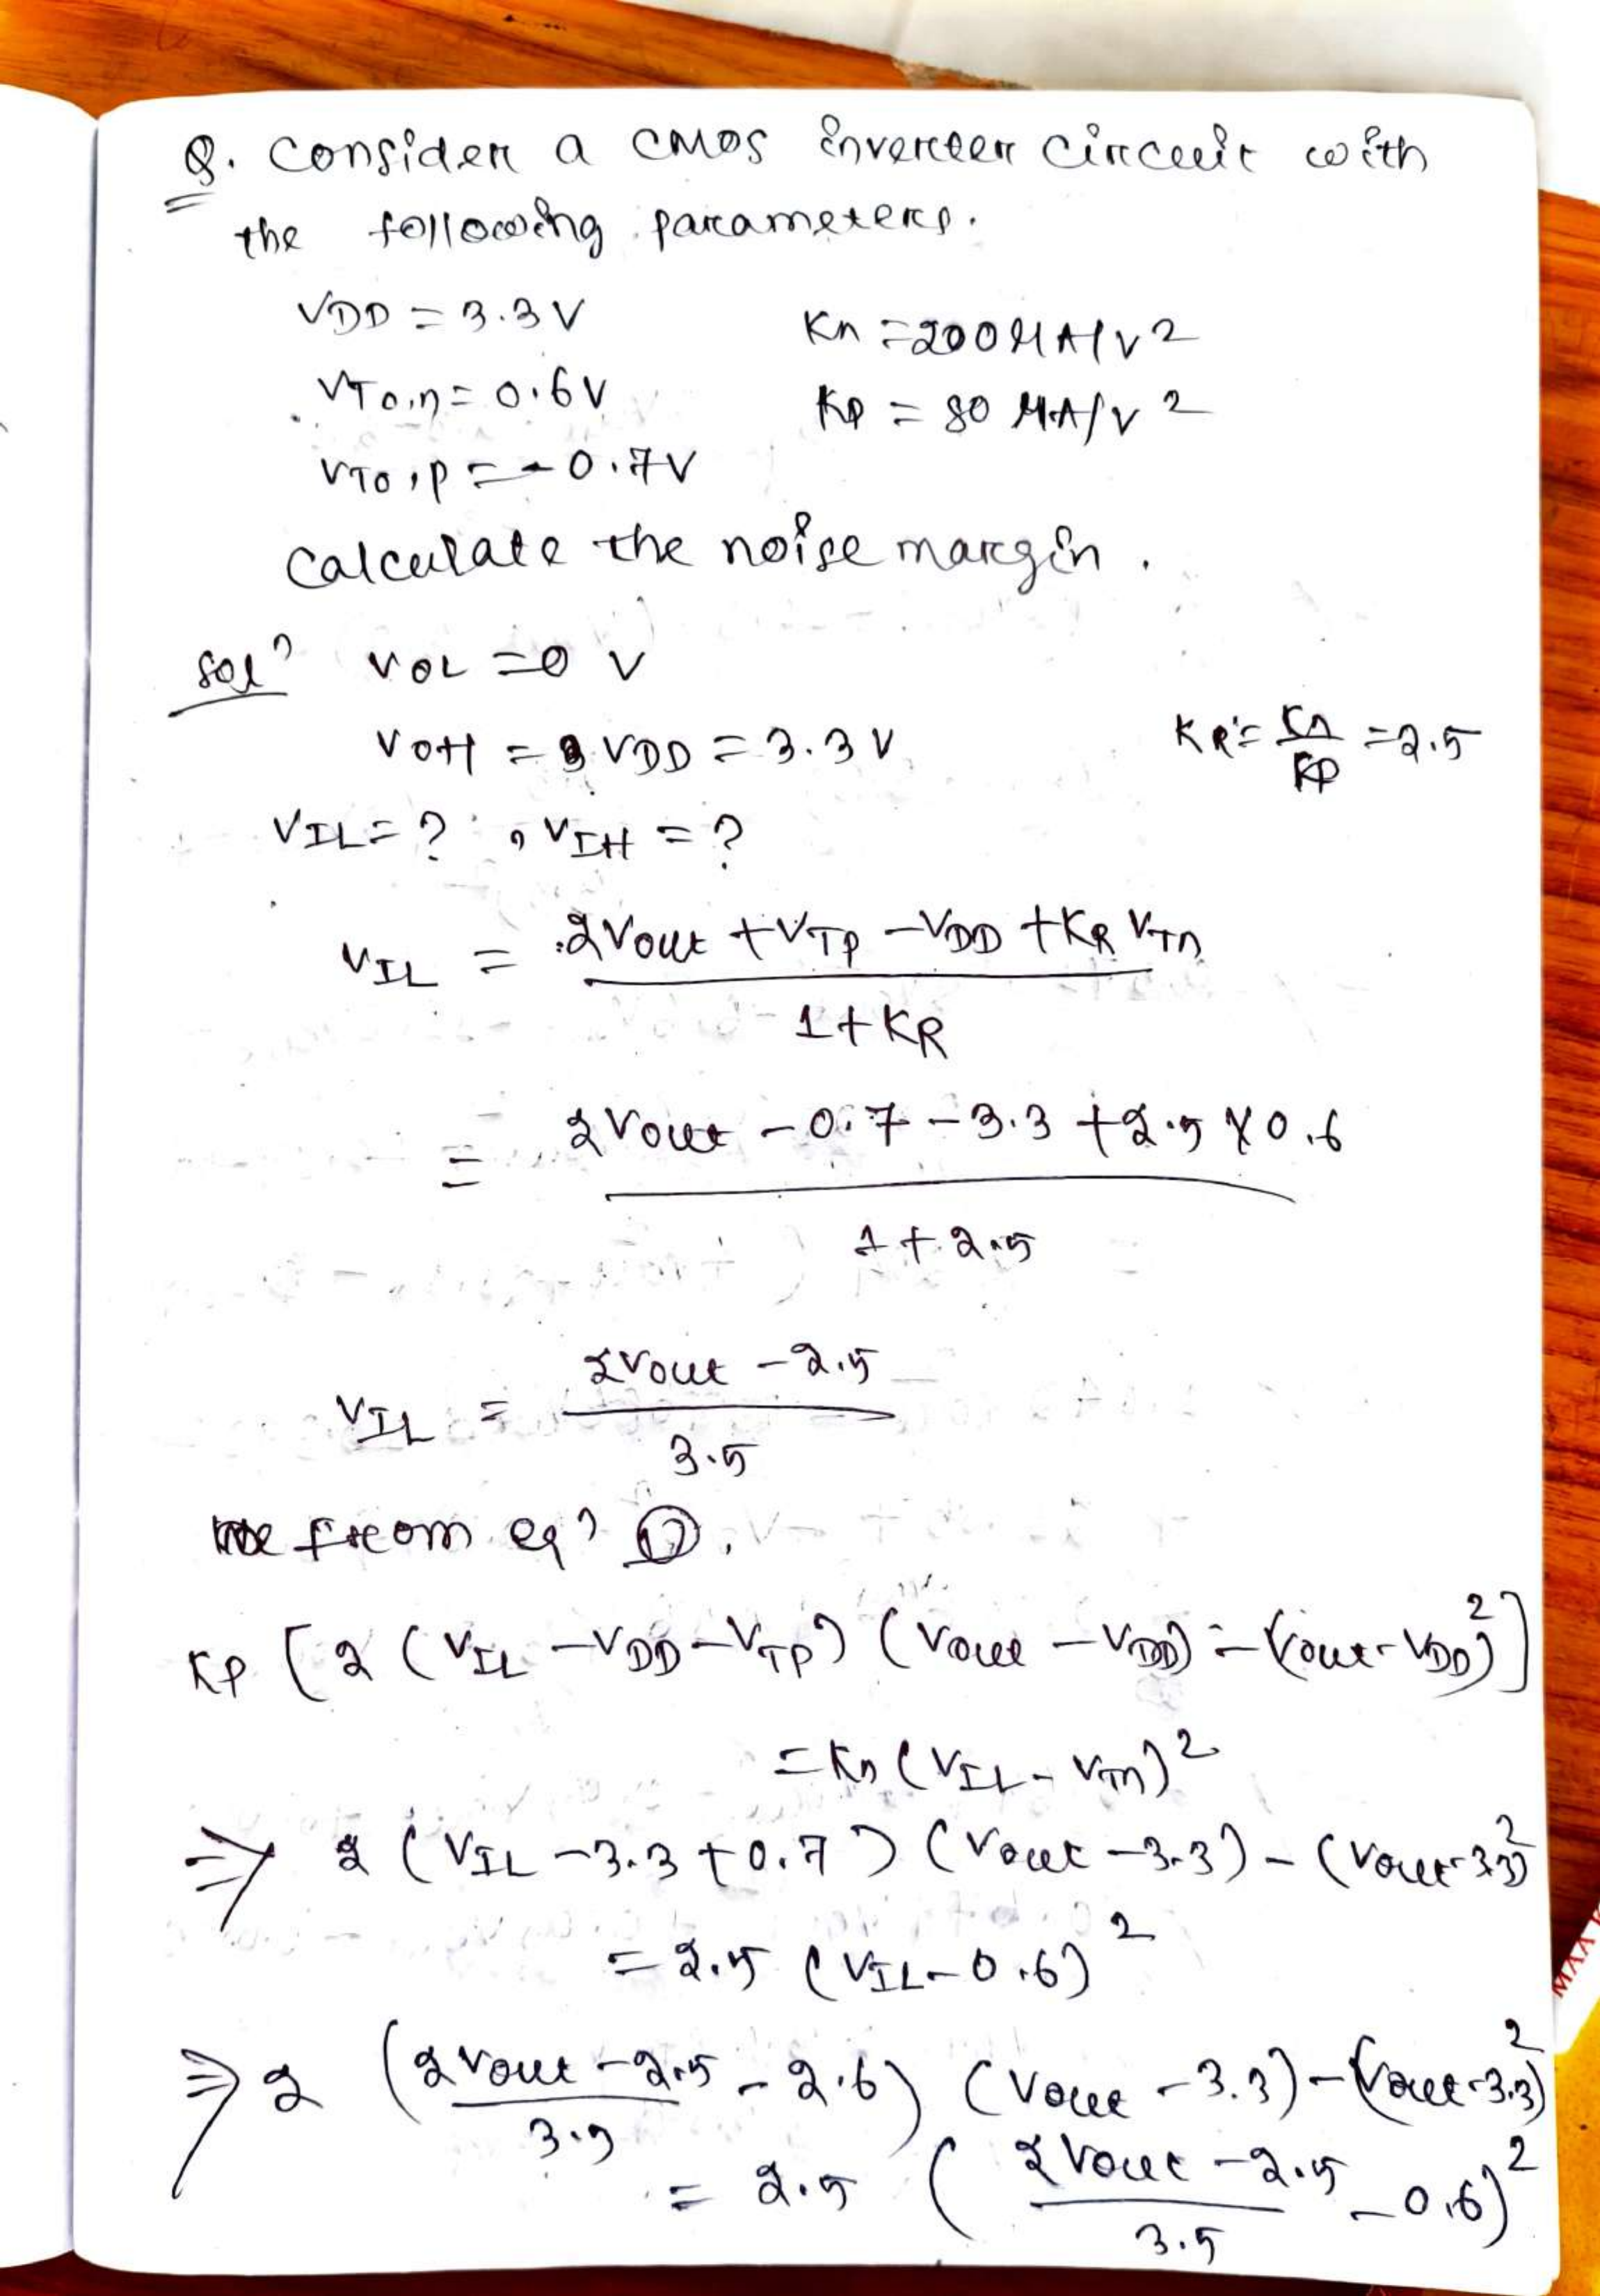 Q. Consider a CMOS inverter circuit with
the following parameters.
VDD = 3.3 V
Kn = 200 μA/V2
VTo,n = 0.6V
Kp = 80 μA/V2
VTo,p = -0.7V
Calculate the noise margin.
Soln VOL = 0 V
VOH = VDD = 3.3 V
KR = Kn/Kp = 2.5
VIL = ? , VIH = ?
VIL = 2Vout + VTp - VDD + KR VTn
1 + KR
= 2Vout - 0.7 - 3.3 + 2.5 × 0.6
1 + 2.5
VIL = 2Vout - 2.5
3.5
from eqn ①,
Kp [2 (VIL - VDD - VTp) (Vout - VDD) - (Vout - VDD)2]
= Kn (VIL - VTn)2
⇒ 2 (VIL - 3.3 + 0.7) (Vout - 3.3) - (Vout - 3.3)2
= 2.5 (VIL - 0.6)2
⇒ 2 (2Vout - 2.5 / 3.5 - 2.6) (Vout - 3.3) - (Vout - 3.3)2
= 2.5 (2Vout - 2.5 / 3.5 - 0.6)2